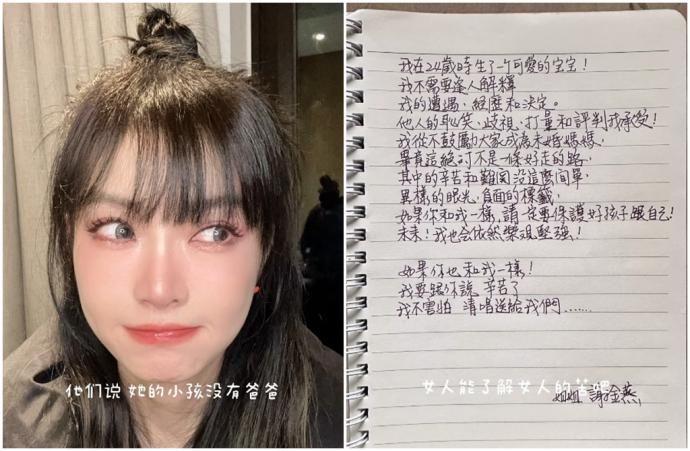 他们说 她的小孩没有爸爸
我在24歲時生了一个可愛的宝宝！
我不需要逢人解釋
我的遭遇、經歷和決定。
他人的恥笑、歧視、打量和評判我承受！
我從不鼓勵大家成為未婚媽媽，
畢竟這絕对不是一條好走的路，
其中的辛苦和難固没這麼间單，
異樣的眼光，負面的標籤，
如果你和我一樣，請一定要保護好孩子跟自己！
未來！我也会依然樂观堅強！
如果你也和我一樣！
我要跟你說 辛苦了
我不害怕 清唱送給我們......
女人能了解女人的苦吧
姐姐 謝金燕